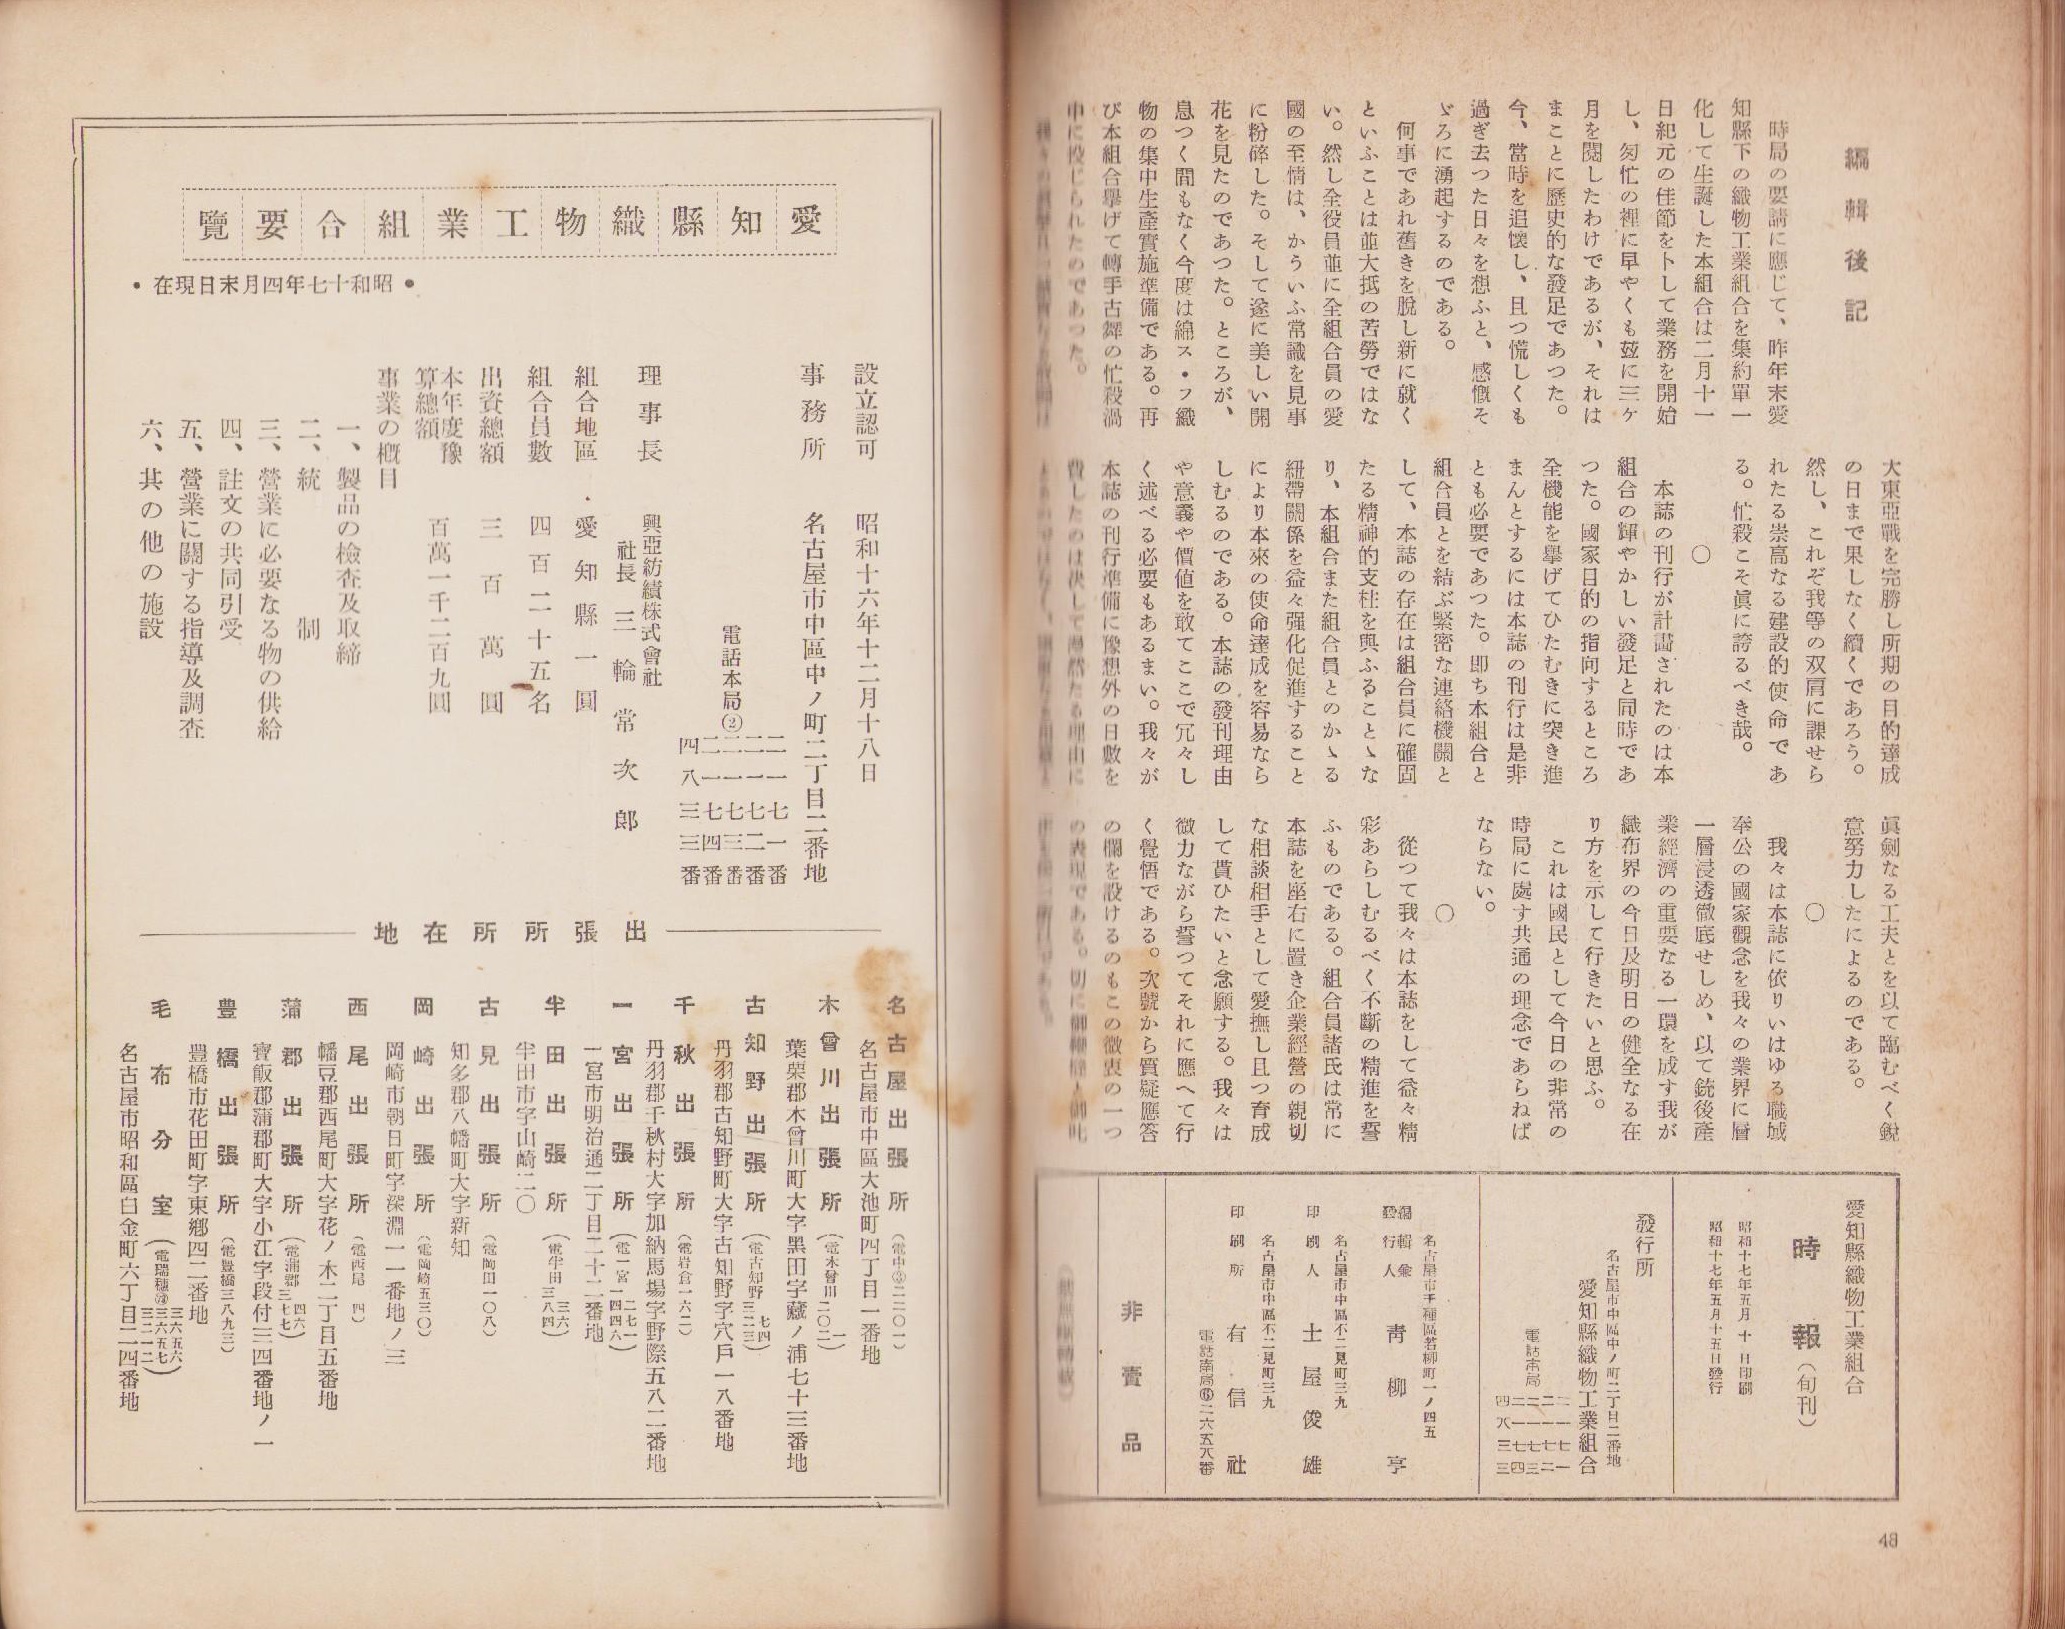 編輯後記
時局の要請に應じて、昨年末愛
知縣下の織物工業組合を集約單一
化して生誕した本組合は二月十一
日紀元の佳節を卜して業務を開始
し、匆忙の裡に早やくも茲に三ケ
月を閲したわけであるが、それは
まことに歷史的な發足であつた。
今、當時を追懷し、且つ慌しくも
過ぎ去つた日々を想ふと、感慨そ
ゞろに湧起するのである。
何事であれ舊きを脫し新に就く
といふことは並大抵の苦勞ではな
い。然し全役員並に全組合員の愛
國の至情は、かういふ常識を見事
に粉碎した。そして遂に美しい開
花を見たのであつた。ところが、
息つく間もなく今度は綿ス・フ織
物の集中生產實施準備である。再
び本組合擧げて轉手古舞の忙殺渦
中に投じられたのであつた。
大東亞戰を完勝し所期の目的達成
の日まで果しなく續くであろう。
然し、これぞ我等の双肩に課せら
れたる崇高なる建設的使命であ
る。忙殺こそ眞に誇るべき哉。
○
本誌の刊行が計畫されたのは本
組合の輝やかしい發足と同時であ
つた。國家目的の指向するところ
全機能を擧げてひたむきに突き進
まんとするには本誌の刊行は是非
とも必要であつた。即ち本組合と
組合員とを結ぶ緊密な連絡機關と
して、本誌の存在は組合員に確固
たる精神的支柱を與ふることゝな
り、本組合また組合員とのかゝる
紐帶關係を益々强化促進すること
により本來の使命達成を容易なら
しむるのである。本誌の發刊理由
や意義や價値を敢てここで冗々し
く述べる必要もあるまい。我々が
本誌の刊行準備に豫想外の日數を
費したのは決して漫然たる理由に
眞劍なる工夫とを以て臨むべく銳
意努力したによるのである。
○
我々は本誌に依りいはゆる職域
奉公の國家觀念を我々の業界に層
一層浸透徹底せしめ、以て銃後產
業經濟の重要なる一環を成す我が
織布界の今日及明日の健全なる在
り方を示して行きたいと思ふ。
これは國民として今日の非常の
時局に處す共通の理念であらねば
ならない。
○
從つて我々は本誌をして益々精
彩あらしむるべく不斷の精進を誓
ふものである。組合員諸氏は常に
本誌を座右に置き企業經營の親切
な相談相手として愛撫し且つ育成
して貰ひたいと念願する。我々は
微力ながら誓つてそれに應へて行
く覺悟である。次號から質疑應答
の欄を設けるのもこの微衷の一つ
の表現である。
愛知縣織物工業組合
時報(旬刊)
昭和十七年五月十日印刷
昭和十七年五月十五日發行
發行所
名古屋市中區中ノ町二丁目二番地
愛知縣織物工業組合
電話本局
二一七一
二一七二
二一七三
二一七四
四八三三
名古屋市千種區若柳町一ノ四五
編輯兼發行人 靑柳亨
名古屋市中區不二見町三九
印刷人 土屋俊雄
名古屋市中區不二見町三九
印刷所 有信社
非賣品
48
愛知縣織物工業組合要覽
•昭和十七年四月末日現在•
設立認可 昭和十六年十二月十八日
事務所 名古屋市中區中ノ町二丁目二番地
電話本局②
二一七一番
二一七二番
二一七三番
二一七四番
四八三三番
理事長 興亞紡績株式會社
社長 三輪常次郎
組合地區 愛知縣一圓
組合員數 四百二十五名
出資總額 三百萬圓
本年度豫算總額 百萬一千二百九圓
事業の槪目
一、製品の檢査及取締
二、統制
三、營業に必要なる物の供給
四、註文の共同引受
五、營業に關する指導及調査
六、其の他の施設
出張所所在地
名古屋出張所
名古屋市中區大池町四丁目一番地
木曾川出張所
葉栗郡木曾川町大字黑田字藏ノ浦七十三番地
古知野出張所
丹羽郡古知野町大字古知野字穴戶一八番地
千秋出張所(電岩倉一六二)
丹羽郡千秋村大字加納馬場字野際五八二番地
一宮出張所
一宮市明治通二丁目二十二番地
半田出張所
半田市字山崎二〇
古見出張所(電岡田一〇八)
知多郡八幡町大字新知
岡崎出張所(電岡崎五三〇)
岡崎市朝日町字深淵一一番地ノ三
西尾出張所(電西尾 四)
幡豆郡西尾町大字花ノ木二丁目五番地
蒲郡出張所
寶飯郡蒲郡町大字小江字段付三四番地ノ一
豊橋出張所(電豊橋三八九三)
豊橋市花田町字東鄕四二番地
毛布分室
名古屋市昭和區白金町六丁目二四番地